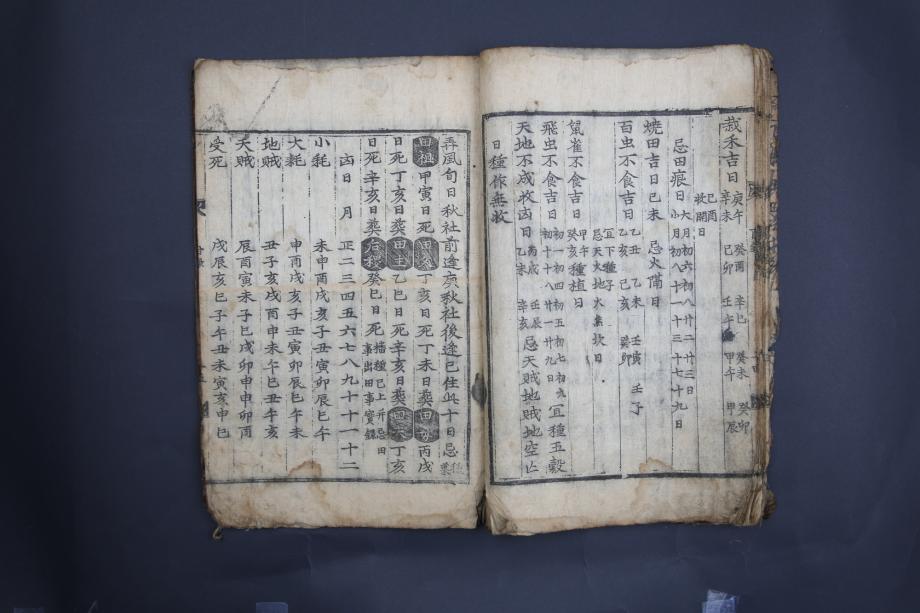 栽禾吉日 庚午 辛未 癸酉 己卯 辛巳 壬午 癸未 甲午 癸卯 甲辰
己酉 收開日
忌田痕日 大月初六初八廿二廿三日 小月初八十一十三十七十九日
燒田吉日己未 忌火隔日
百虫不食吉日 乙丑 乙亥 乙未 己亥 壬寅 癸卯 壬子
宜下種子 忌天火地火無收日
鼠雀不食吉日 甲午 癸亥 種植日
飛虫不食吉日 初一初四初五初七初九 初十一初八廿一廿九日 宜種五穀
天地不成收凶日 丙戌 乙未 壬辰 辛亥 忌天賊地賊地空亡
日種作無收
弄風旬日秋社前逢庚秋社後逢己住此十日忌
田祖甲寅日死 丁亥日死丁未日葬田母丙戌
日死丁亥日葬田主乙巳日死辛亥日葬 丁亥
日死辛亥日葬后稷癸巳日死 播種已上并忌田 事出田事實錄
凶日 月 正二三四五六七八九十十一十二
小耗 未申酉戌亥子丑寅卯辰巳午
大耗 申酉戌亥子丑寅卯辰巳午未
地賊 丑子亥戌酉申未午巳丑午亥
天賊 辰酉寅未子巳戌卯申卯酉
受死 戌辰亥巳子午丑未寅申